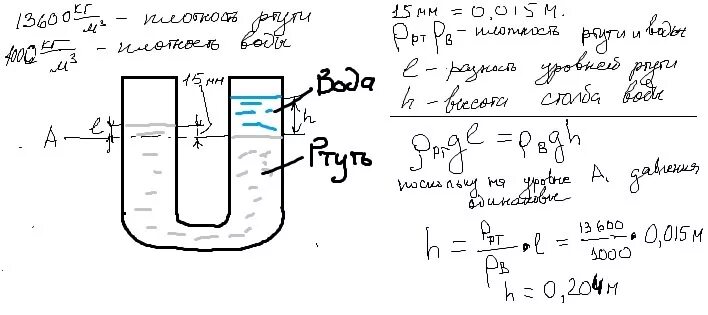 13600 кг/м³ – плотность ртути
1000 кг/м³ – плотность воды
15 мм
Вода
l
h
A
Ртуть
15 мм = 0,015 м.
ρрт ρв – плотность ртути и воды
l – разность уровней ртути
h – высота столба воды
ρрт g l = ρв g h
поскольку на уровне А, давления
одинаковы
h = ρрт/ρв · l = 13600/1000 · 0,015 м
h = 0,204 м